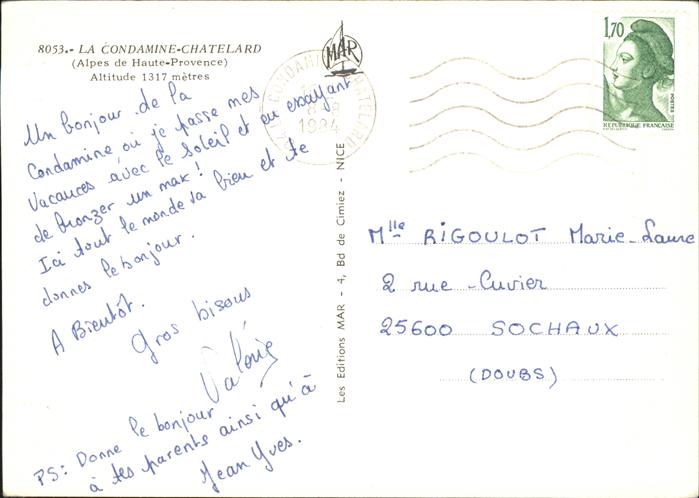 8053.- LA CONDAMINE-CHATELARD
(Alpes de Haute-Provence)
Altitude 1317 mètres
Un bonjour de la
Condamine où je passe mes
vacances avec le soleil et en essayant
de bronzer un max!
Ici tout le monde va bien et te
donnes le bonjour.
A Bientôt.
Gros bisous
Valérie
PS: Donne le bonjour
à tes parents ainsi qu'à
Jean Yves.
MAR
Les Editions MAR - 4, Bd de Cimiez - NICE
LA CONDAMINE CHATELARD
1984
1,70
POSTES
REPUBLIQUE FRANÇAISE
Mlle RIGOULOT Marie-Laure
2 rue Cuvier
25600 SOCHAUX
(DOUBS)